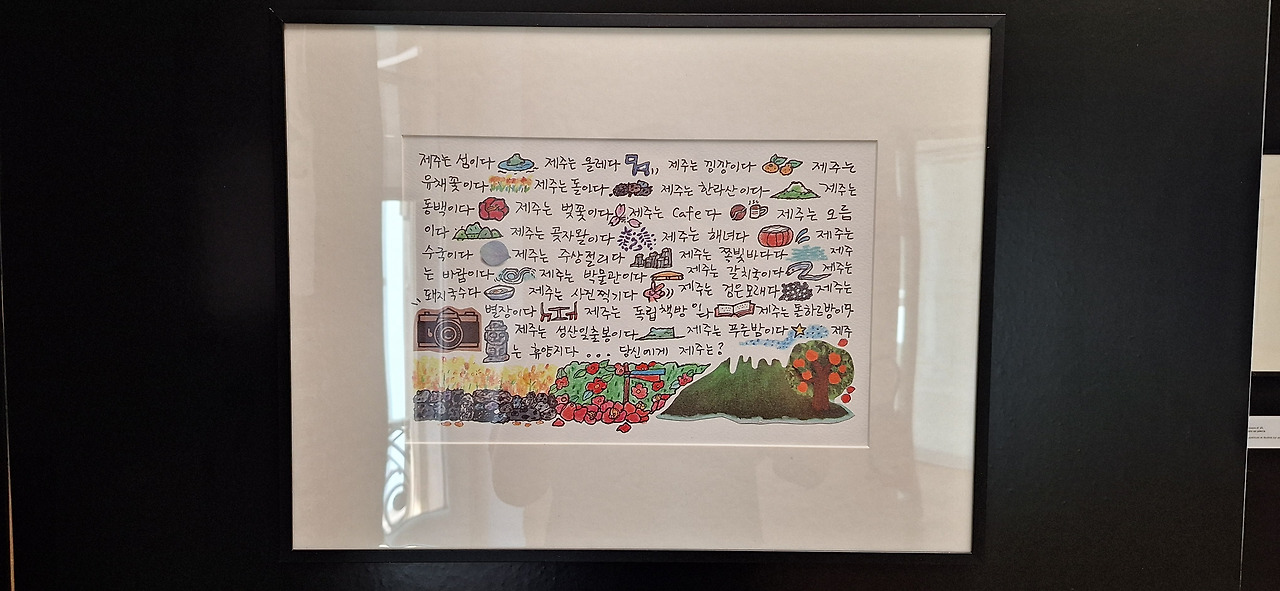 제주는 섬이다 제주는 올레다 제주는 낑깡이다 제주는
유채꽃이다 제주는 돌이다 제주는 한라산이다 제주는
동백이다 제주는 벚꽃이다 제주는 Cafe다 제주는 오름
이다 제주는 곶자왈이다 제주는 해녀다 제주는
수국이다 제주는 주상절리다 제주는 쪽빛바다다 제주
는 바람이다 제주는 박물관이다 제주는 갈치국이다 제주는
돼지국수다 제주는 사진찍기다 제주는 검은모래다 제주는
별장이다 제주는 독립책방이다 제주는 돌하르방이다
제주는 성산일출봉이다 제주는 푸른밤이다 제주
는 휴양지다 ... 당신에게 제주는?